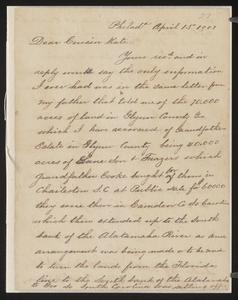 Philad. April 15th 1901
Dear Cousin Kate
Yours recd. and in
reply would say the only information
I ever had was in the same letter from
my father that told me of the 70,000
acres of land in Glynn County Ga
which I have accounted of Grandfathers
Estate in Glynn County, being 20,000
acres of & Fraziers which
grandfather Cooke bought of them in
Charleston S.C at Public Sale for 60000
they some there in Camden Co So Carolina
which then extended up to the South
bank of the Alatamaha River as an
arrangement was being made or to be made
to turn the lands from the Florida
line to the South bank of the Alatamaha
to Geo So South Carolina